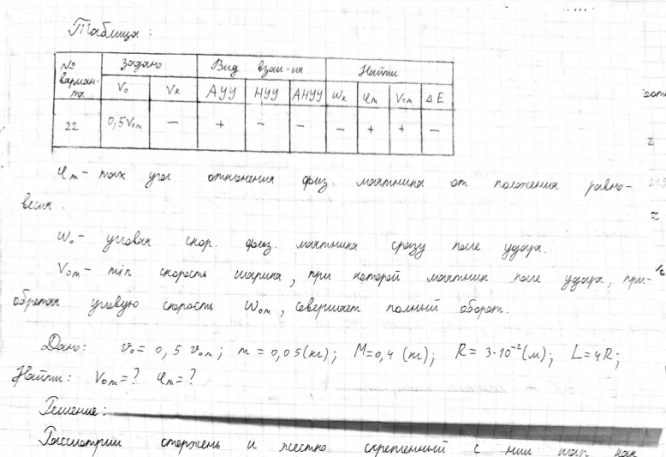 Таблица:
№ вариан-та | задано | Вид взаи-ия | Найти
V₀ | Vк | АУУ | НУУ | АНУУ | ωк | φm | V₀m | ΔE
22 | 0,5V₀m | — | + | — | — | — | + | + | —
φm - max угол отклонения физ. маятника от положения равно-
весия.
ω₀ - угловая скор. физ. маятника сразу после удара.
V₀m - min скорость шарика, при которой маятник после удара, при-
обретая угловую скорость ω₀m, совершает полный оборот.
Дано: v₀ = 0,5 v₀m; m = 0,05 (кг); M = 0,4 (кг); R = 3·10⁻² (м); L = 4R;
Найти: V₀m = ? φm = ?
Решение:
Рассмотрим стержень и жестко скрепленный с ним шар как